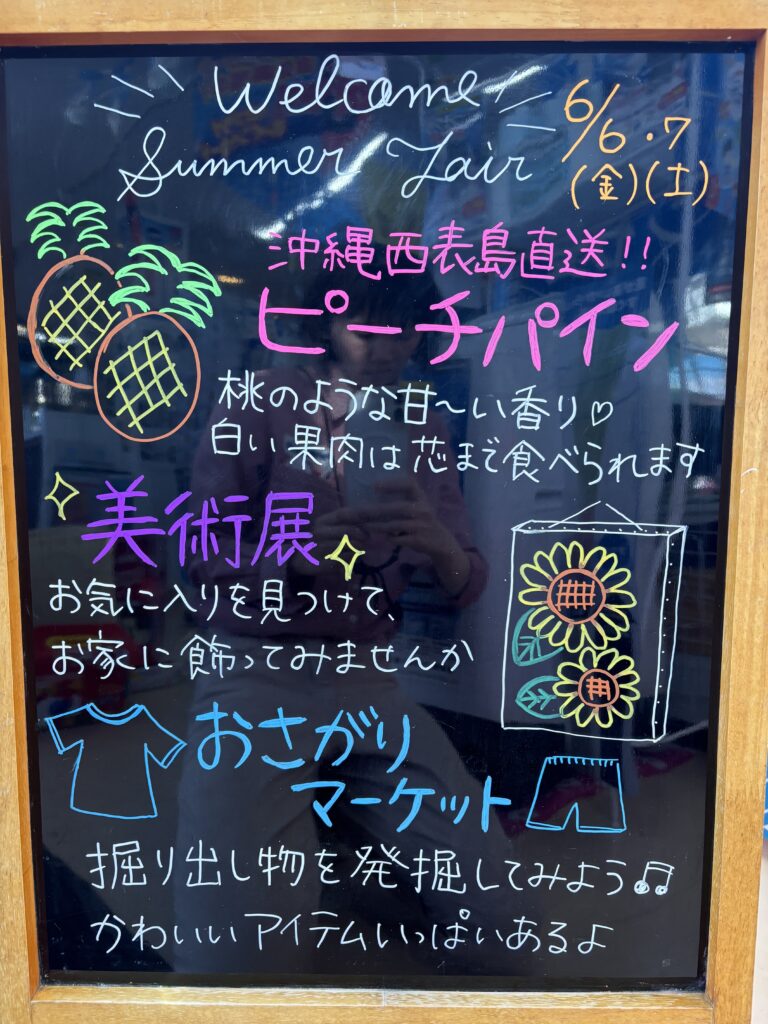 Welcome
Summer Fair
6/6・7
(金)(土)
沖縄西表島直送!!
ピーチパイン
桃のような甘〜い香り♡
白い果肉は芯まで食べられます
美術展
お気に入りを見つけて、
お家に飾ってみませんか
おさがり
マーケット
掘り出し物を発掘してみよう♫
かわいいアイテムいっぱいあるよ